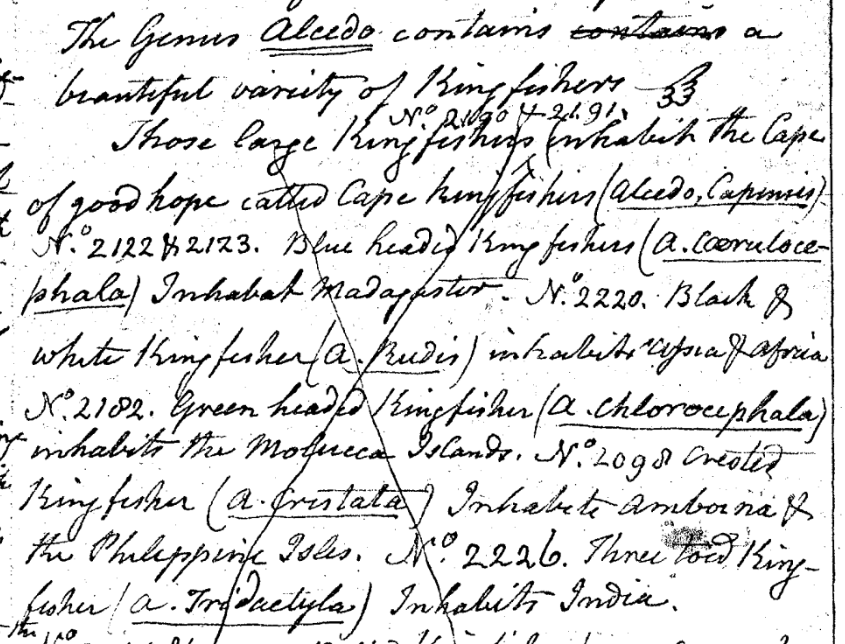 The Genus Alcedo contains contains a
beautiful variety of Kingfishers 33
No. 2190 & 2191.
Those large Kingfishers inhabit the Cape
of good hope called Cape Kingfishers (Alcedo, Capensis)
No. 2122 & 2123. Blue headed Kingfishers (A. Cœruloce-
phala) Inhabat Madagaster. No. 2220. Black &
white Kingfisher (A. Rudis) inhabits Asia & Africa
No. 2182. Green headed Kingfisher (A. Chlorocephala)
inhabits the Molucca Islands. No. 2098 Crested
Kingfisher (A. Cristata) Inhabits Amboina &
the Phileppine Isles. No. 2226. Three toed King-
fisher (A. Tridactyla) Inhabits India.